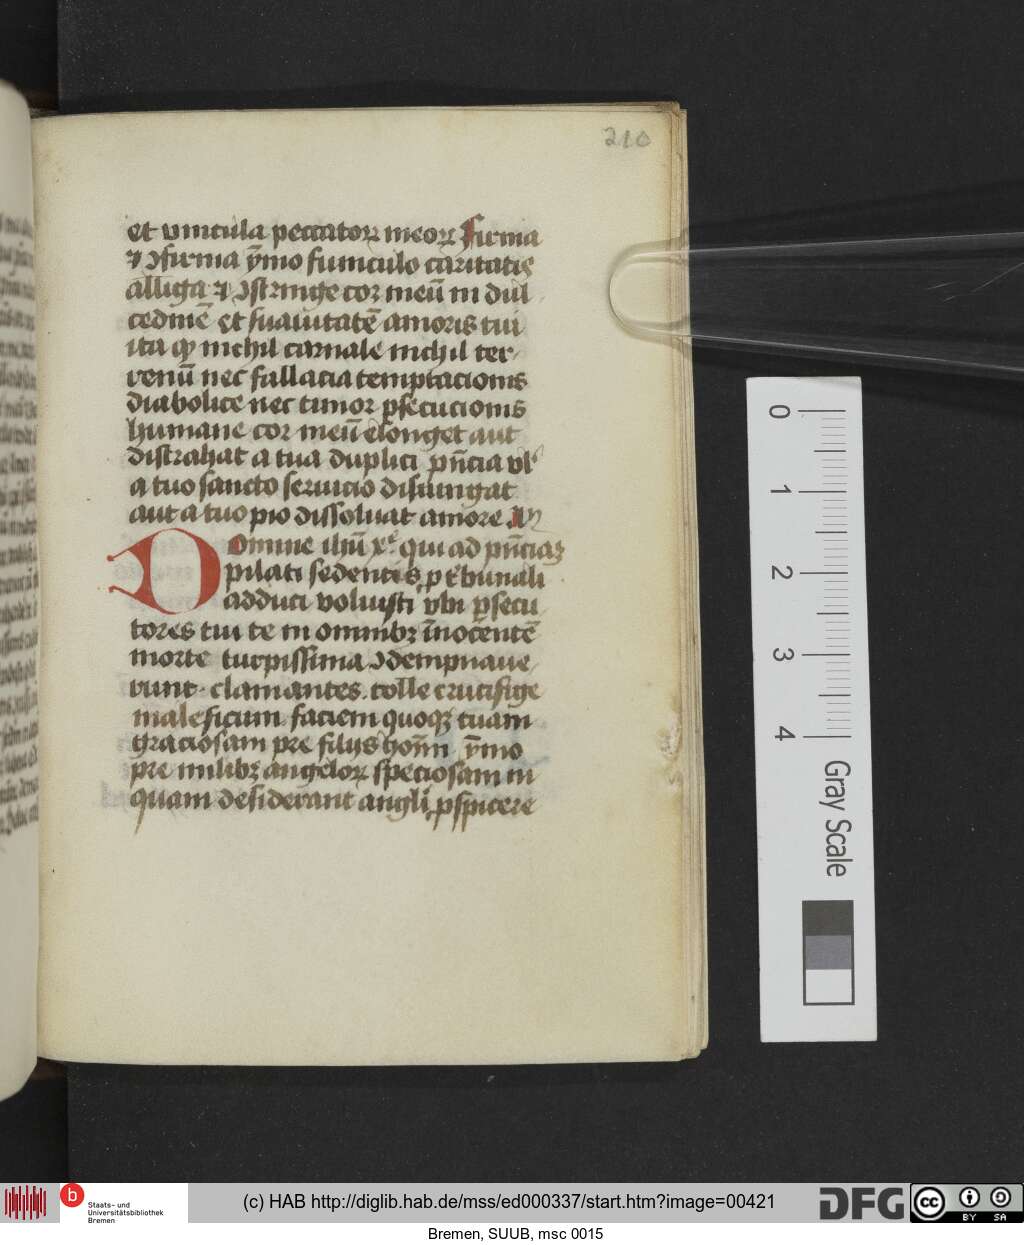 210
et vincula peccatoꝝ meoꝝ ffirma
⁊ ꝯfirma ẏmo funiculo caritatis
alliga ⁊ ꝯstringe cor meū in dul
cedinē et suauitatē amoris tui
ita qͥ nichil carnale nichil ter
renū nec fallacia temptacionis
diabolice nec timor ꝑsecucionis
humane cor meū elonget aut
distrahat a tua duplici pñcia vlˀ
a tuo sancto seruicio disiungat
aut a tuo pio dissoluat amore
Domine ihū xᵉ qui ad pñciaꝫ
pilati sedentis ꝓ tͥbunali
adduci voluisti vbi ꝑsecu
tores tui te in omnibꝫ īnocentē
morte turpissima ꝯdempnaue
runt · clamantes . tolle crucifige
maleficum faciem quoqꝫ tuam
graciosam pre filijs hoīm ẏmo
pre milibꝫ angeloꝝ speciosam in
quam desiderant angli ꝓspicere
0
1
2
3
4
Gray Scale
b Staats- und
Universitätsbibliothek
Bremen
(c) HAB http://diglib.hab.de/mss/ed000337/start.htm?image=00421
DFG
cc BY SA
Bremen, SUUB, msc 0015